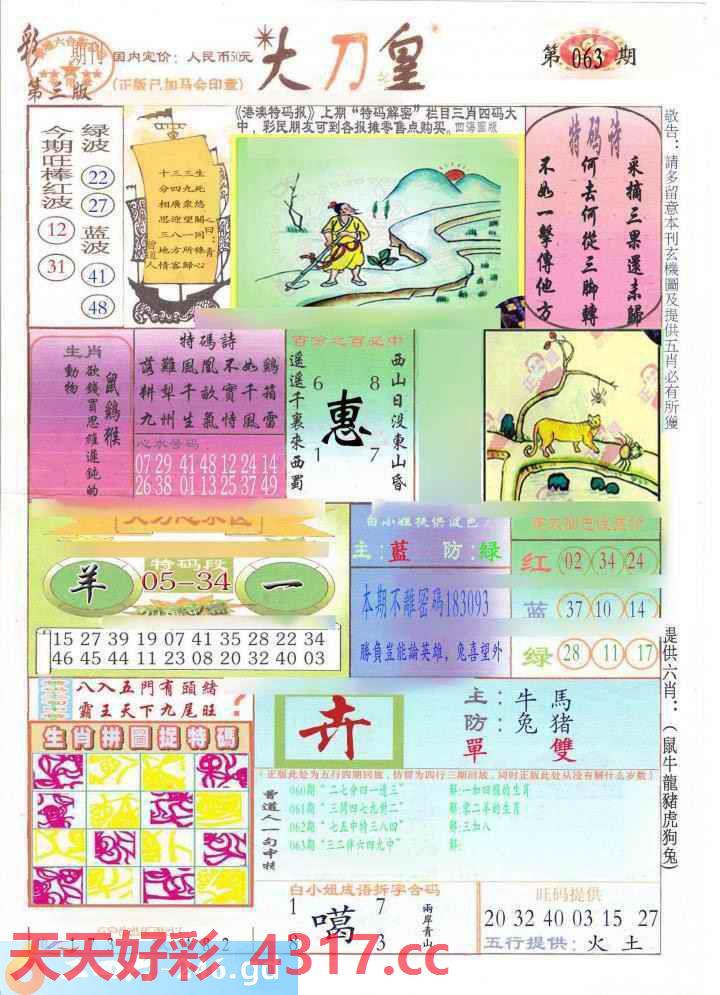 彩 期刊
第三版
国内定价：人民币50元
(正版已加马会印章)
大刀皇
第 063 期
《港澳特码报》上期“特码解密”栏目三肖四码大
中，彩民朋友可到各报摊零售点购买。四海圖版
今期旺棒红波
12
31
绿波
22
27
蓝波
41
48
十三三生
分四九死
相廣衆悠
思迎望關
三八一同
地方所條
情客歸心
曾道人
特码诗
采摘三果還未歸
何去何從三脚轉
不如一擊傳他方
敬告：請多留意本刊玄機圖及提供五肖必有所獲
生肖動物
欲錢買思維遲鈍的
鼠鷄猴
特碼詩
落難鳳凰不如鷄
耕犁千畝實千箱
九州生氣恃風雷
心水号码
07 29 41 48 12 24 14
26 38 01 13 25 37 49
百分之百必中
西山日没東山昏
遥遥千裏來西蜀
6 8
惠
1 7
羊
特码段
05-34
一
15 27 39 19 07 41 35 28 22 34
46 45 44 11 23 08 20 32 40 03
白小姐提供波色
主：蓝 防：绿
本期不離密碼183093
勝負豈能論英雄，兔喜望外
红 02 34 24
蓝 37 10 14
绿 28 11 17
提供六肖：（鼠牛龍豬虎狗兔）
八入五門有頭緒
霸王天下九尾旺
?
生肖拼圖捉特碼
卉
主：牛 馬
防：兔 猪
單 雙
(正版此处为五行四期回放，仿冒为四行三期回放，同时正版此处从没有解什么岁数)
曾道人一句中特
060期“二七分四一边三” 解:一如四报的生肖
061期“三開四七九對二” 解:零二羊的生肖
062期“七五中特三八四” 解:三加八
063期“三二伴六四九中” 解:
白小姐成语拆字合码
1 7
噶
8 3
兩岸青山
旺码提供
20 32 40 03 15 27
五行提供：火 土
天天好彩 4317.cc